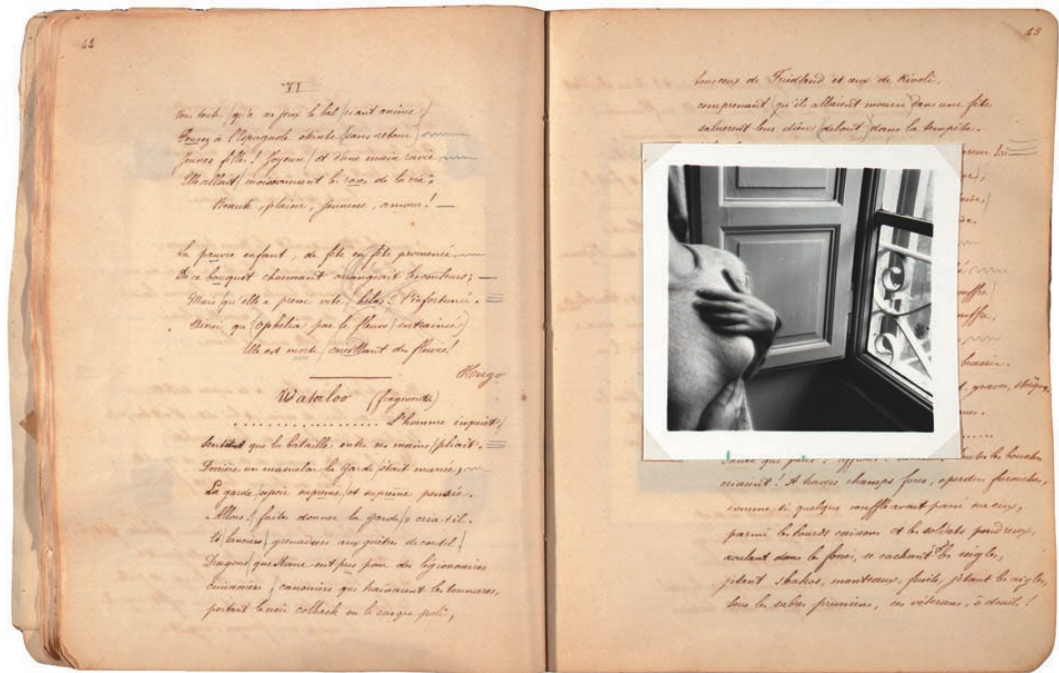 42
vous toutes (qu'à ses jeux le bal (riant anime)
Pensez à l'Espagnole éteinte (sans retour)
Jeunes filles! Joyeuse / et d'une main ravie
Elle allait / moissonnant les roses de la vie;
Beauté, plaisir, jeunesse, amour! —
La pauvre enfant, de fête en fête promenée,
De ce bouquet charmant arrangeait les couleurs;
Mais qu'elle a passé vite, hélas! l'infortunée.
Ainsi qu'(Ophélia par le fleuve) entrainée)
Elle est morte / cueillant des fleurs!
Hugo
Waterloo (fragments)
.............. L'homme inquiet /
Sentit que la bataille entre ses mains / pliait.
Derrière un mamelon la garde était massée,
La garde / espoir suprême / et suprême pensée.
« Allons! faites donner la garde / » cria-t-il.
Et lanciers / grenadiers aux guêtres de coutil /
Dragons / que Rome eut pris pour des légionnaires
Cuirassiers, / canonniers qui traînaient les tonnerres,
portant le noir colback ou le casque poli,
43
tous ceux de Friedland et ceux de Rivoli.
comprenant (qu'ils allaient mourir) dans une fête
saluèrent leur dieu (debout) dans la tempête.
graves,
toutes les bouches
criaient! A travers champs fous, éperdus farouches,
comme si quelque souffle avait passé sur eux,
parmi les lourds caissons et les soldats poudreux,
roulant dans les fossés, se cachant les seigles,
jetant shakos, manteaux, fusils, jetant les aigles,
sous les sabres prussiens, ces vétérans, ô deuil!